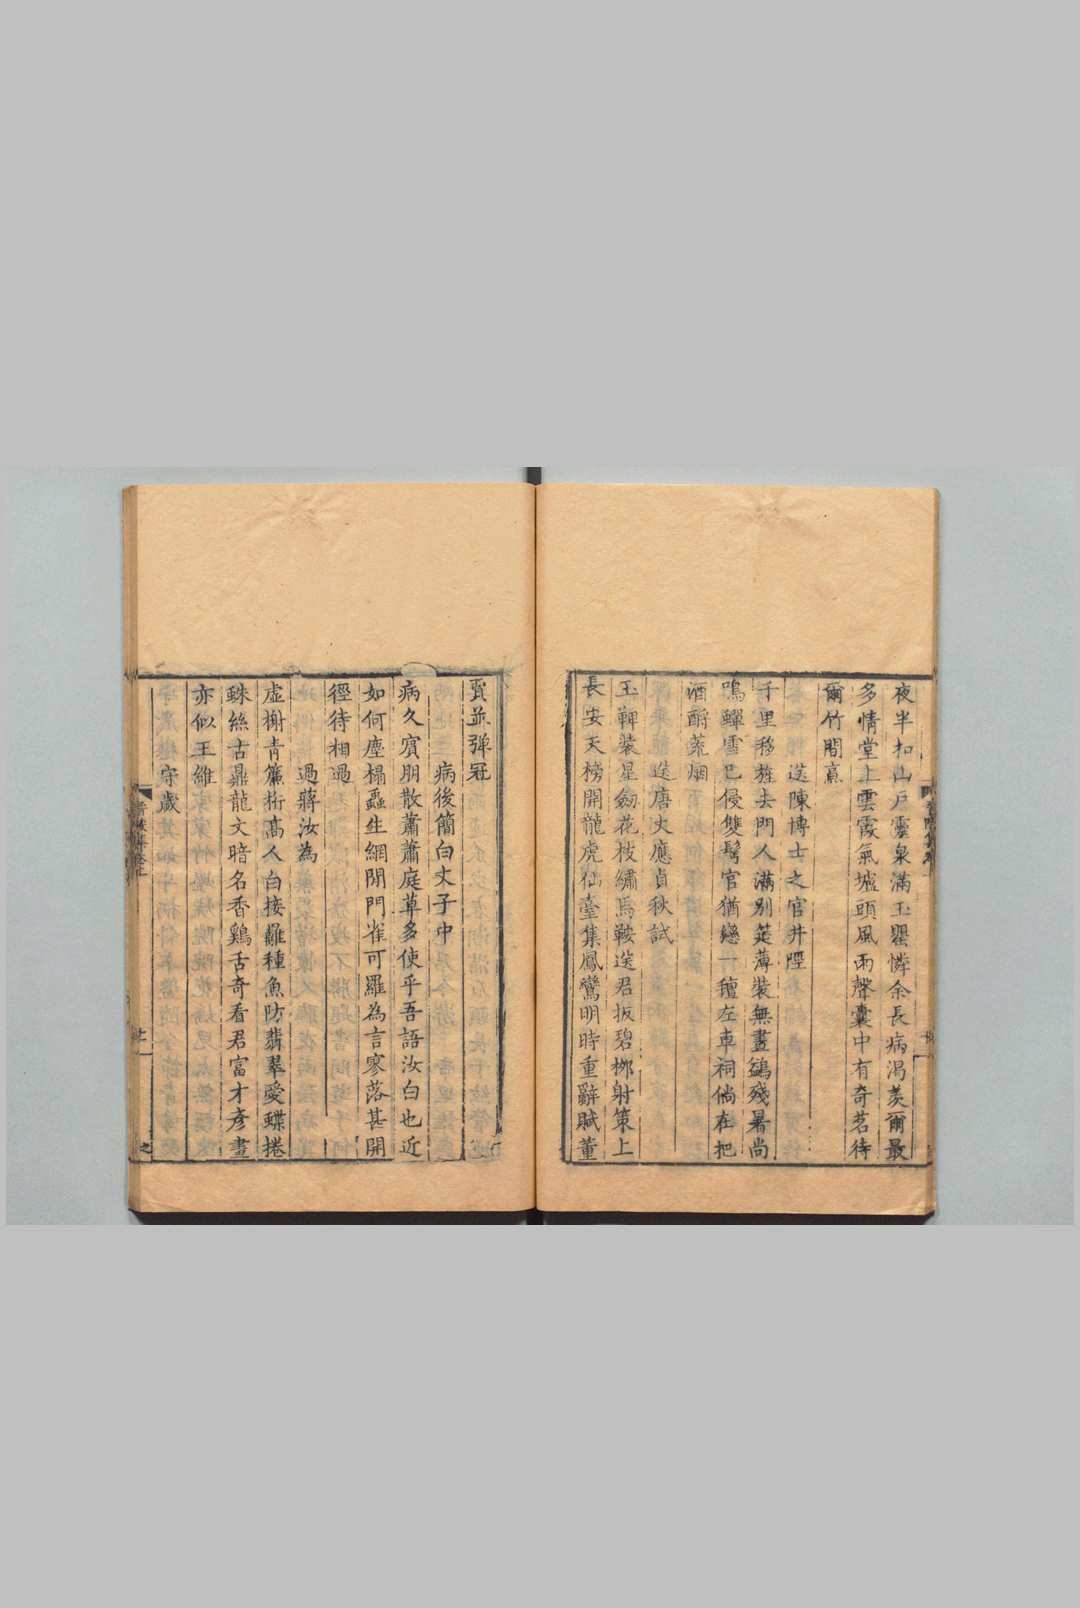 夜半扣山戶靈泉滿玉罌憐余長病渴羨爾最
多情堂上雲霞氣壚頭風雨聲囊中有奇茗待
爾竹間烹
送陳博士之官井陘
千里移旌去門人滿別筵薄裝無畫鷁殘暑尚
鳴蟬雪已侵雙鬢官猶戀一氊左車祠倘在把
酒酹荒烟
送唐丈應貞秋試
玉鞞裝星劒花枝繡馬鞍送君扳碧柳射策上
長安天榜開龍虎仙臺集鳳鸞明時重辭賦董
賈並彈冠
病後簡白丈子中
病久賓朋散蕭蕭庭草多使乎吾語汝白也近
如何塵榻蟲生網閉門雀可羅為言寥落甚開
徑待相過
過蔣汝為
虛榭青簾桁高人白接䍦種魚防翡翠愛蝶捲
蛛絲古鼎龍文暗名香鷄舌奇看君富才彥畫
亦似王維
守歲